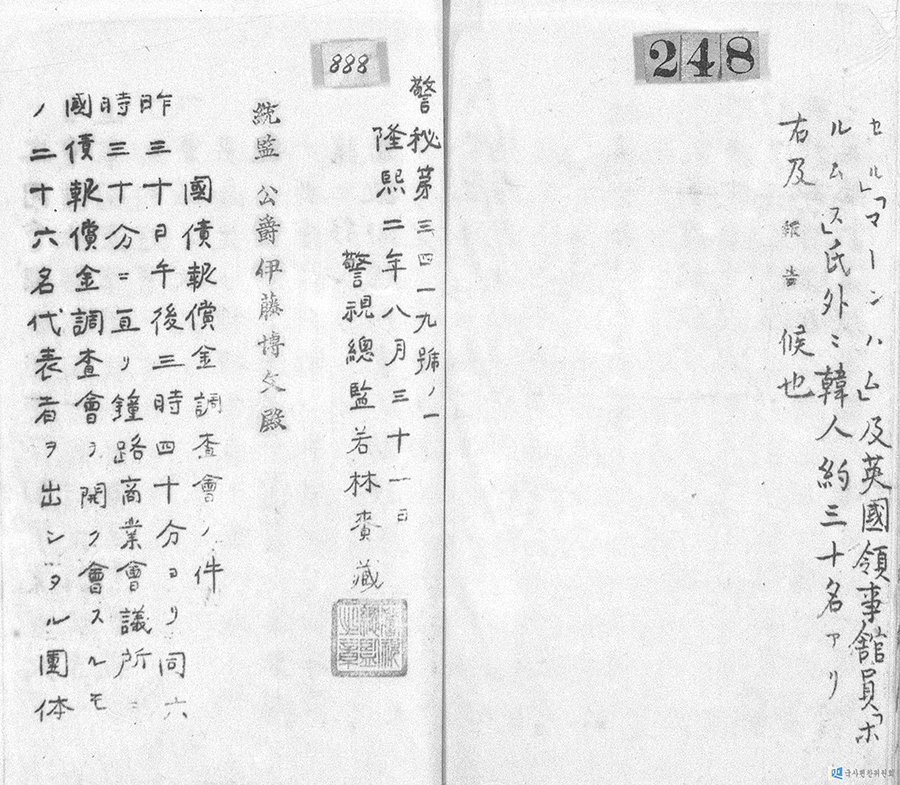 248
セル「マーンハム」及英國領事舘員「ホ
ルムス」氏外ニ韓人約三十名アリ
右及報告候也
888
警秘第三四一九號ノ一
隆熙二年八月三十一日
警視總監若林賚藏
統監公爵伊藤博文殿
國債報償金調査會ノ件
昨三十日午後三時四十分ヨリ同六
時三十分ニ亘リ鐘路商業會議所ニ
國債報償金調査會ヲ開ク會スルモ
ノ二十六名代表者ヲ出シタル團体
국사편찬위원회